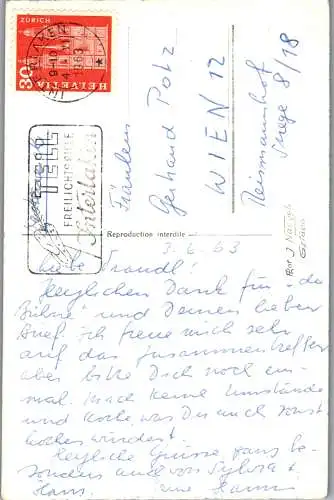 ZÜRICH
30
HELVETIA
INTERLAKEN
9-10
1963
TELL
FREILICHTSPIELE
Interlaken
Fräulein
Gerhand Potz
WIEN 12
Reismannhof
Stiege 8/18
Reproduction interdite
3.6.63
Liebe Traudl!
Herzlichen Dank für "die
Bühne" und Deinen lieben
Brief. ich freue mich sehr
auf das zusammentreffen
aber bitte Dich noch ein-
mal. Mach keine Umstände
und koche was Du auch sonst
kochen würdest.
Herzliche Grüsse, ganz be-
sonders auch von Sylvia &
Hans. Eure